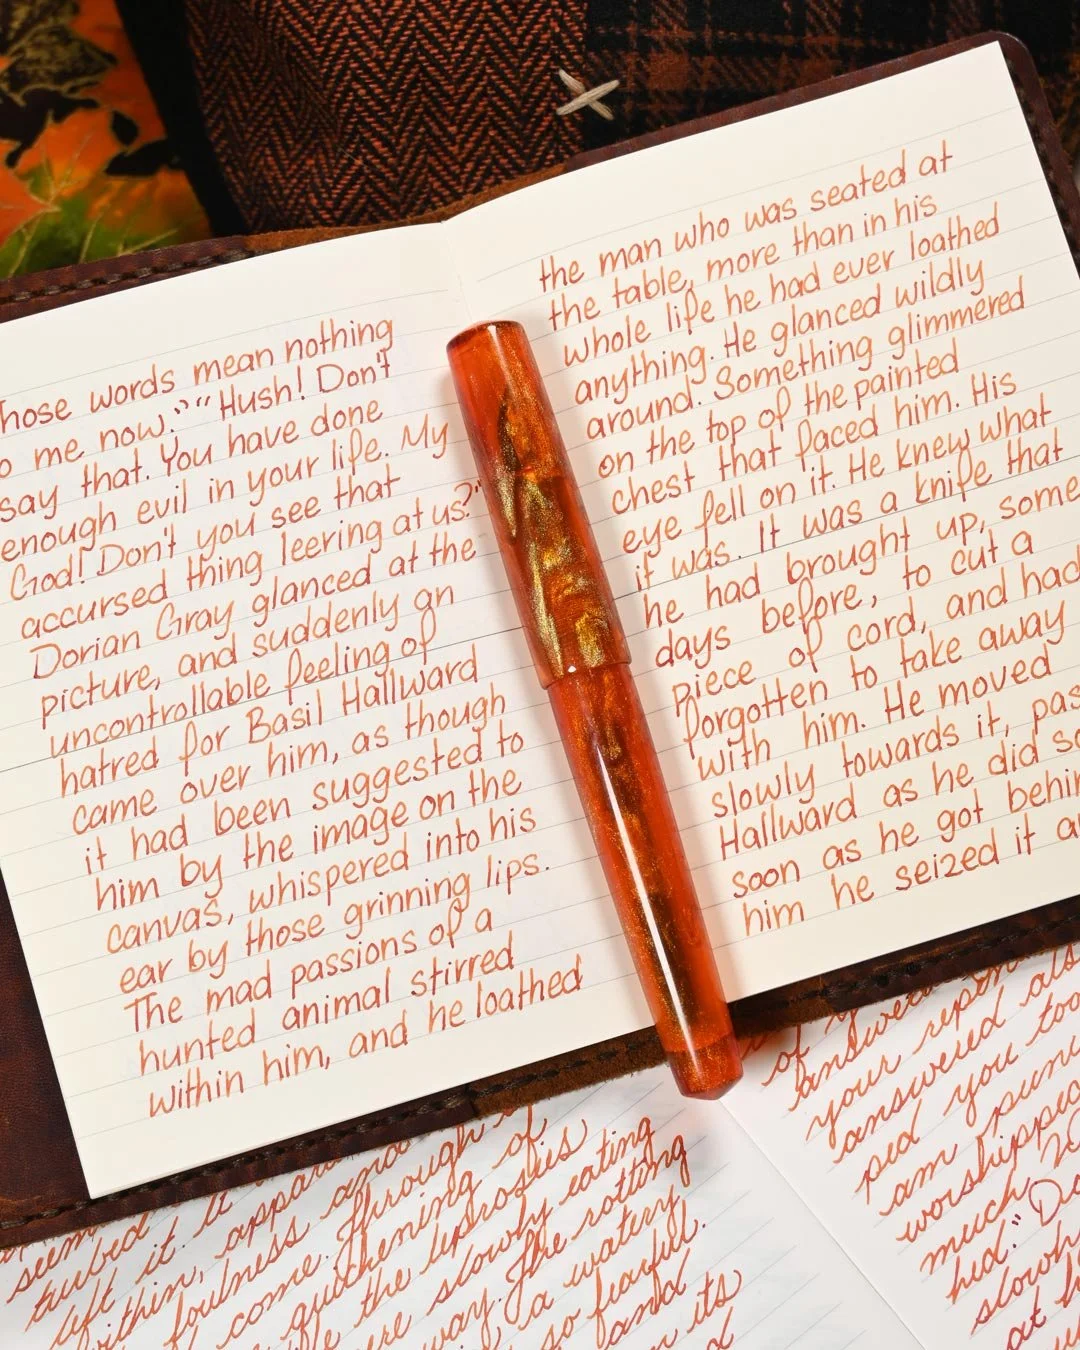 those words mean nothing
to me now." "Hush! Don't
say that. You have done
enough evil in your life. My
God! Don't you see that
accursed thing leering at us?"
Dorian Gray glanced at the
picture, and suddenly an
uncontrollable feeling of
hatred for Basil Hallward
came over him, as though
it had been suggested to
him by the image on the
canvas, whispered into his
ear by those grinning lips.
The mad passions of a
hunted animal stirred
within him, and he loathed
the man who was seated at
the table, more than in his
whole life he had ever loathed
anything. He glanced wildly
around. Something glimmered
on the top of the painted
chest that faced him. His
eye fell on it. He knew what
it was. It was a knife that
he had brought up, some
days before, to cut a
piece of cord, and had
forgotten to take away
with him. He moved
slowly towards it, pas
Hallward as he did so
soon as he got behin
him he seized it a
turbed
left it. It
within, appar
foulness and
come. Through
quickening of
the leprosies
were slowly eating
way. The rotting
a watery
so fearful.
and
its
of
answered
your
answered als
ped you too
am
worshipped
much.
hed." Do
slowly
at h